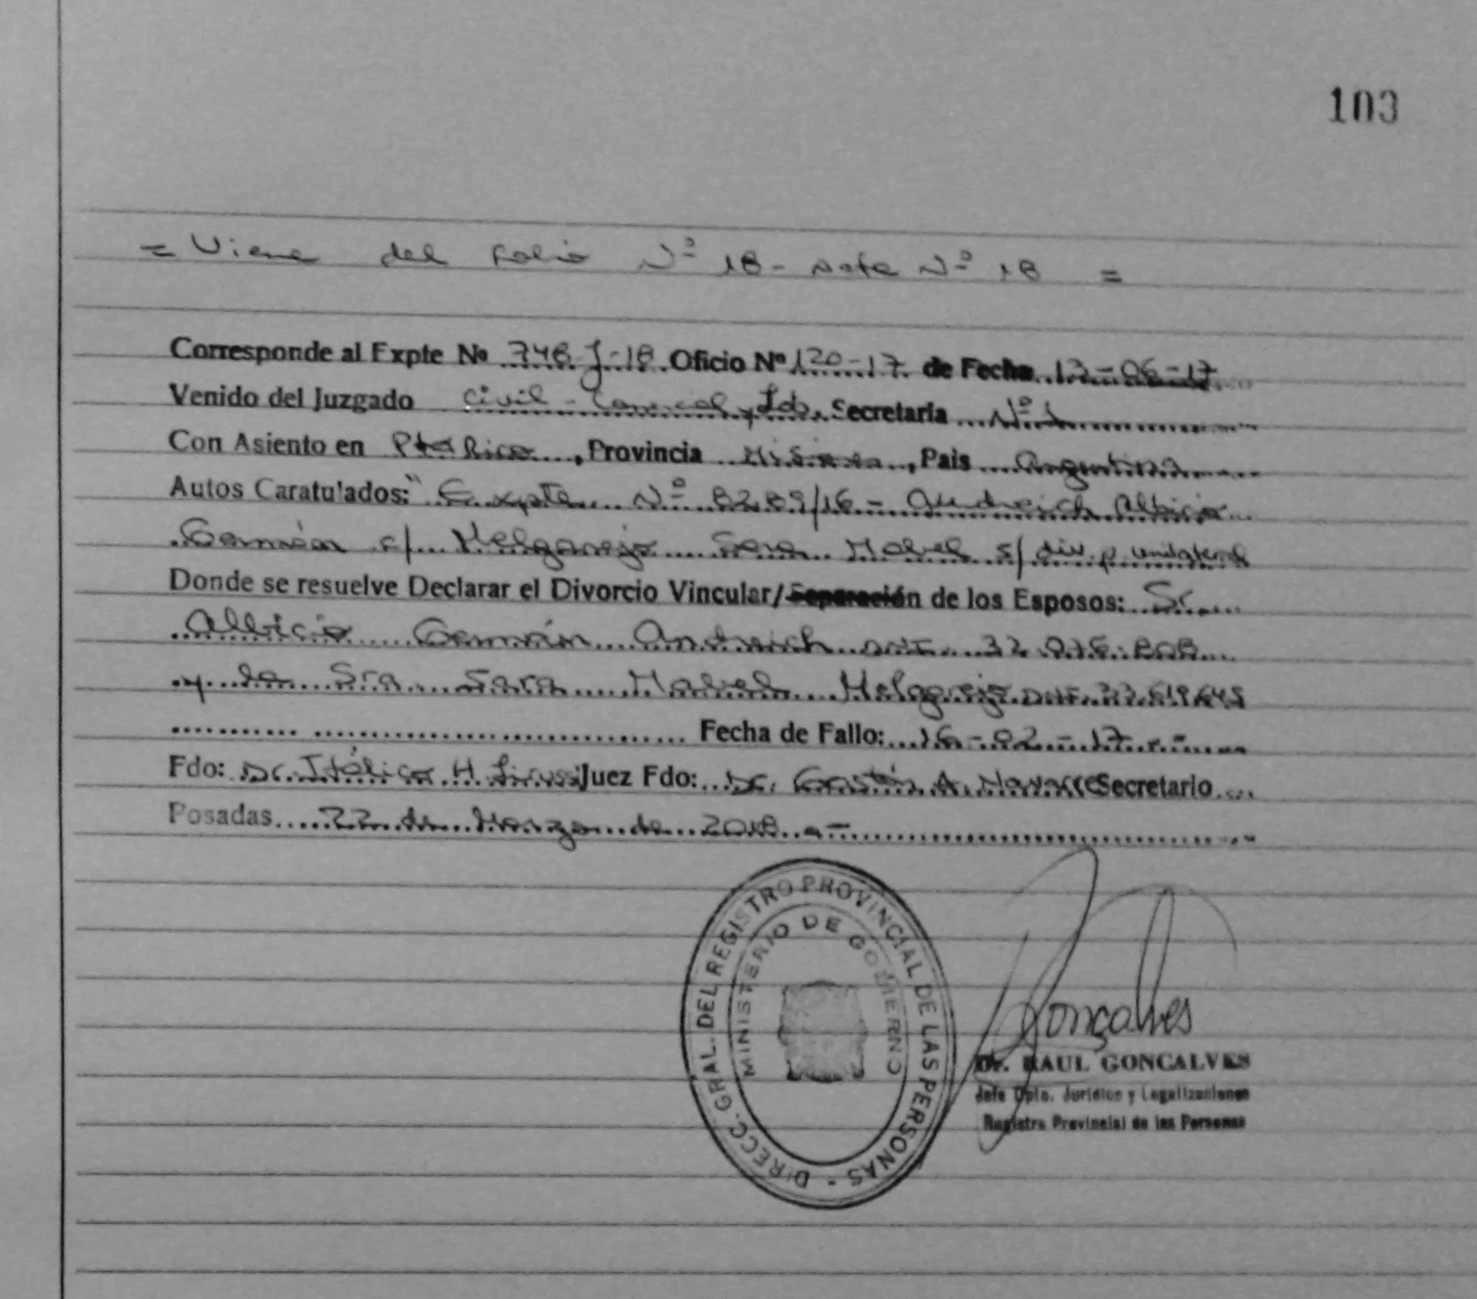 103
= Viene del Folio Nº 18 - Acta Nº 18 =
Corresponde al Expte Nº 748-J-18 Oficio Nº 120-17 de Fecha 12-06-17
Venido del Juzgado Civil - Comercial y Lab. Secretaria Nº 1
Con Asiento en Pto Rico, Provincia Misiones, Pais Argentina
Autos Caratulados: "Expte Nº 8289/16 - Andreich Albicio
Germán c/ Melgarejo Sara Mabel s/ div. p. unilateral
Donde se resuelve Declarar el Divorcio Vincular/Separación de los Esposos: Sr.
Albicio Germán Andreich DNI
y la Sra Sara Mabel Melgarejo DNI
Fecha de Fallo: 16-02-17.-
Fdo: Dr. H. Juez Fdo: Dr. Gastón A. Secretario
Posadas 22 de Marzo de 2018.-
DIRECC. GRAL. DEL REGISTRO PROVINCIAL DE LAS PERSONAS -
MINISTERIO DE GOBIERNO
Gonçalves
Dr. RAUL GONCALVES
Jefe Dpto. Jurídico y Legalizaciones
Registro Provincial de las Personas